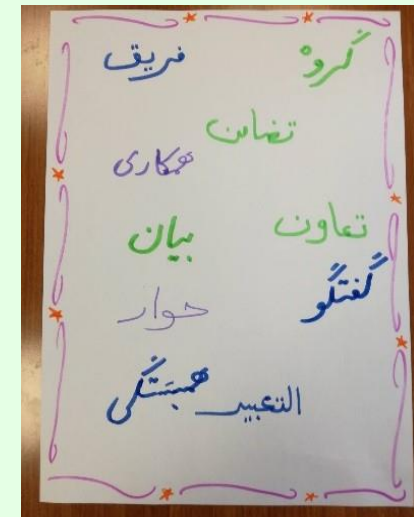 گروه فريق
تضامن
همکاری
تعاون
بیان
گفتگو
حوار
التعبير همبستگی